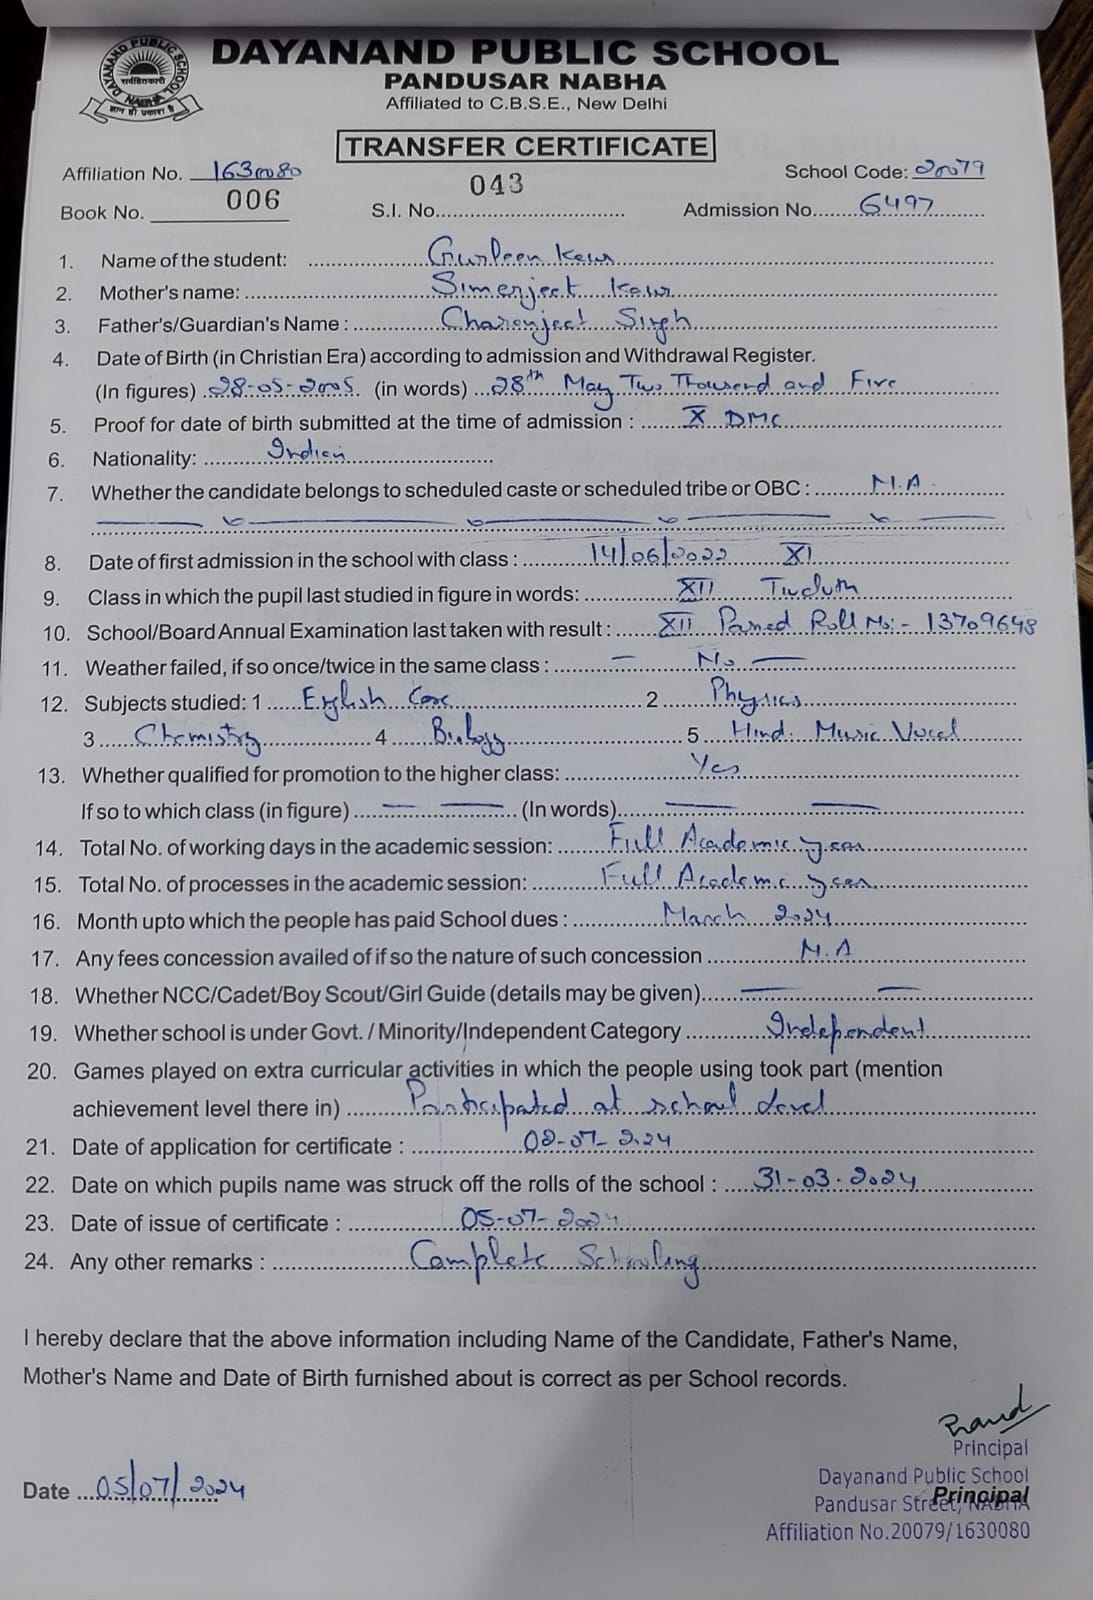 DAYANAND PUBLIC SCHOOL
PANDUSAR NABHA
Affiliated to C.B.S.E., New Delhi
DAYANAND PUBLIC SCHOOL
NABHA
TRANSFER CERTIFICATE
Affiliation No. 1630080 School Code: 20079
Book No. 006 S.I. No. 043 Admission No. 6497
1. Name of the student: Gurleen Kaur
2. Mother's name: Simerjeet Kaur
3. Father's/Guardian's Name : Charenjeet Singh
4. Date of Birth (in Christian Era) according to admission and Withdrawal Register.
(In figures) 28-05-2005 (in words) 28th May Two Thousend and Five
5. Proof for date of birth submitted at the time of admission : X DMC
6. Nationality: Indian
7. Whether the candidate belongs to scheduled caste or scheduled tribe or OBC : N.A.
8. Date of first admission in the school with class : 14/06/2022 XI
9. Class in which the pupil last studied in figure in words: XII
10. School/Board Annual Examination last taken with result : XII Passed Roll No:- 13709648
11. Weather failed, if so once/twice in the same class : — No —
12. Subjects studied: 1 English Core 2 Physics
3 Chemistry 4 Biology 5 Hind. Music Vocal
13. Whether qualified for promotion to the higher class: Yes
If so to which class (in figure) — — (In words) — —
14. Total No. of working days in the academic session: Full Academic year
15. Total No. of processes in the academic session: Full Academic year
16. Month upto which the people has paid School dues : March 2024
17. Any fees concession availed of if so the nature of such concession N.A
18. Whether NCC/Cadet/Boy Scout/Girl Guide (details may be given) — —
19. Whether school is under Govt. / Minority/Independent Category Independent
20. Games played on extra curricular activities in which the people using took part (mention
achievement level there in) Participated at school level
21. Date of application for certificate : 02-07-2024
22. Date on which pupils name was struck off the rolls of the school : 31-03-2024
23. Date of issue of certificate : 05-07-2024
24. Any other remarks : Complete Schooling
I hereby declare that the above information including Name of the Candidate, Father's Name,
Mother's Name and Date of Birth furnished about is correct as per School records.
Principal
Dayanand Public School
Date 05/07/2024
Pandusar Street, NABHA
Principal
Affiliation No.20079/1630080